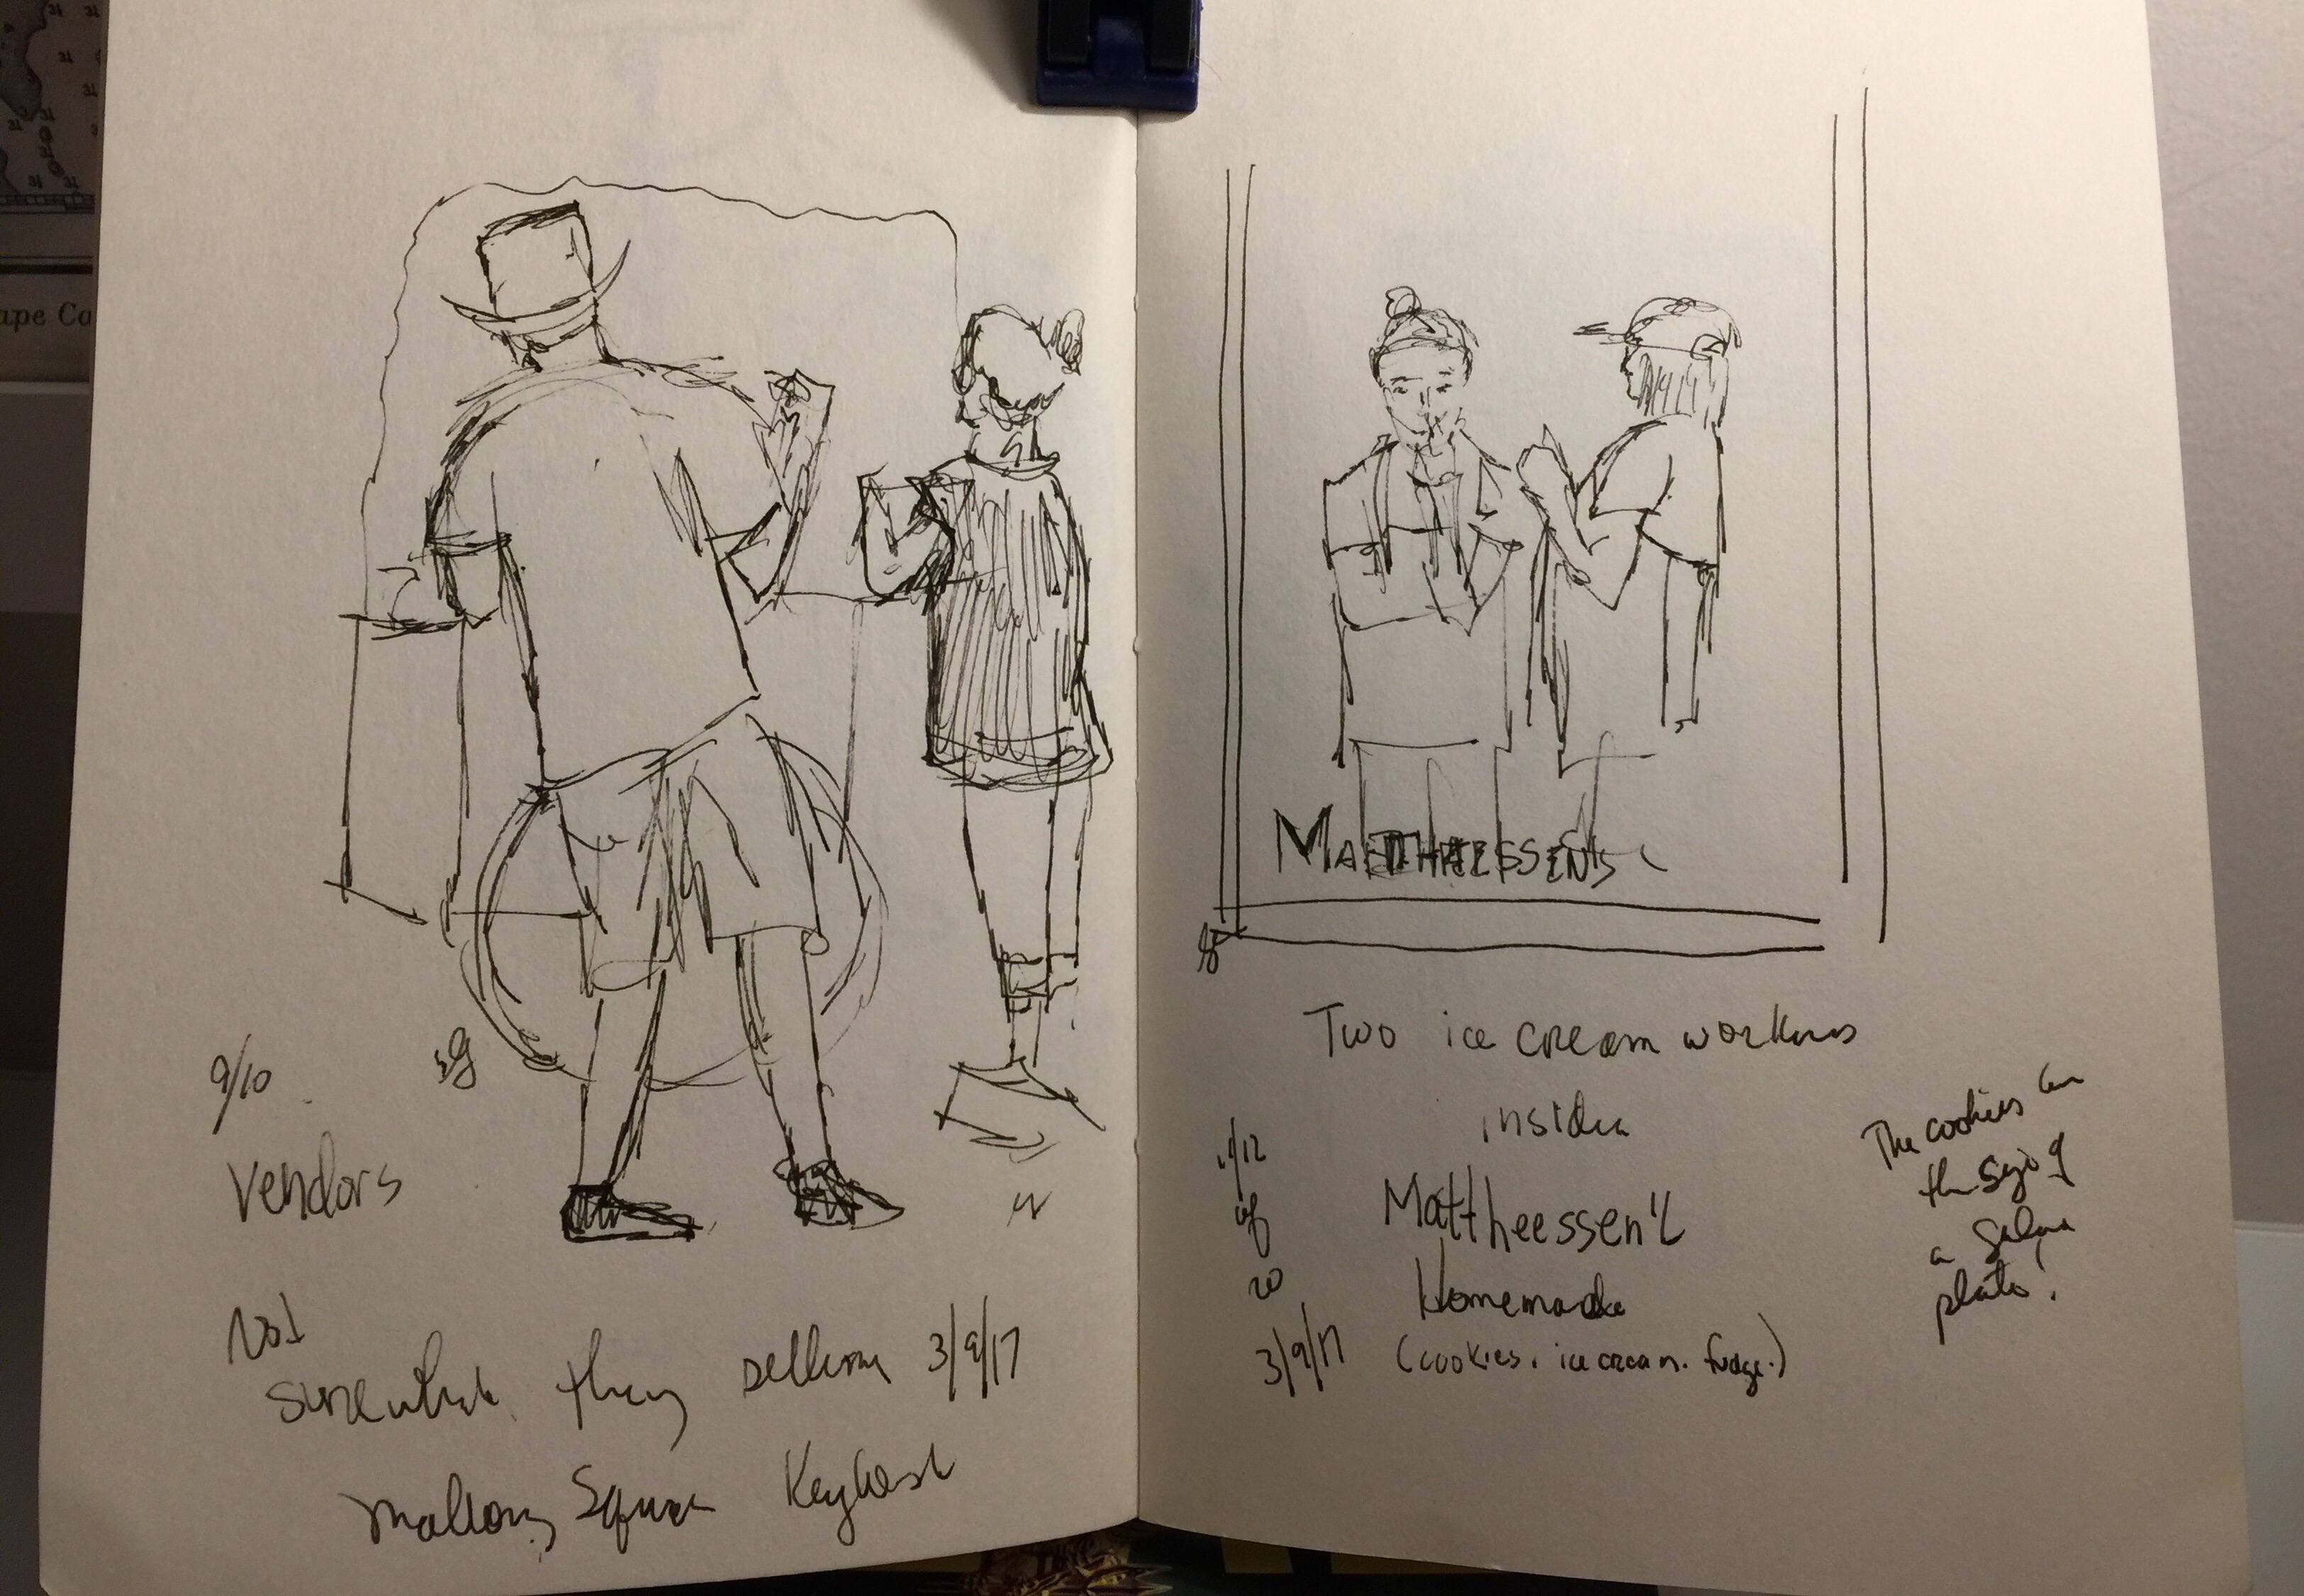 ape Ca
9/10
sg
Vendors
Not
sure what they selling 3/9/17
Mallory Square Key West
MATTHEESSEN'S
Two ice cream workers
inside
Mattheessen's
Homemade
(cookies. ice cream. fudge.)
11/12
of
20
3/9/17
The cookies are
the size of
a
plate!